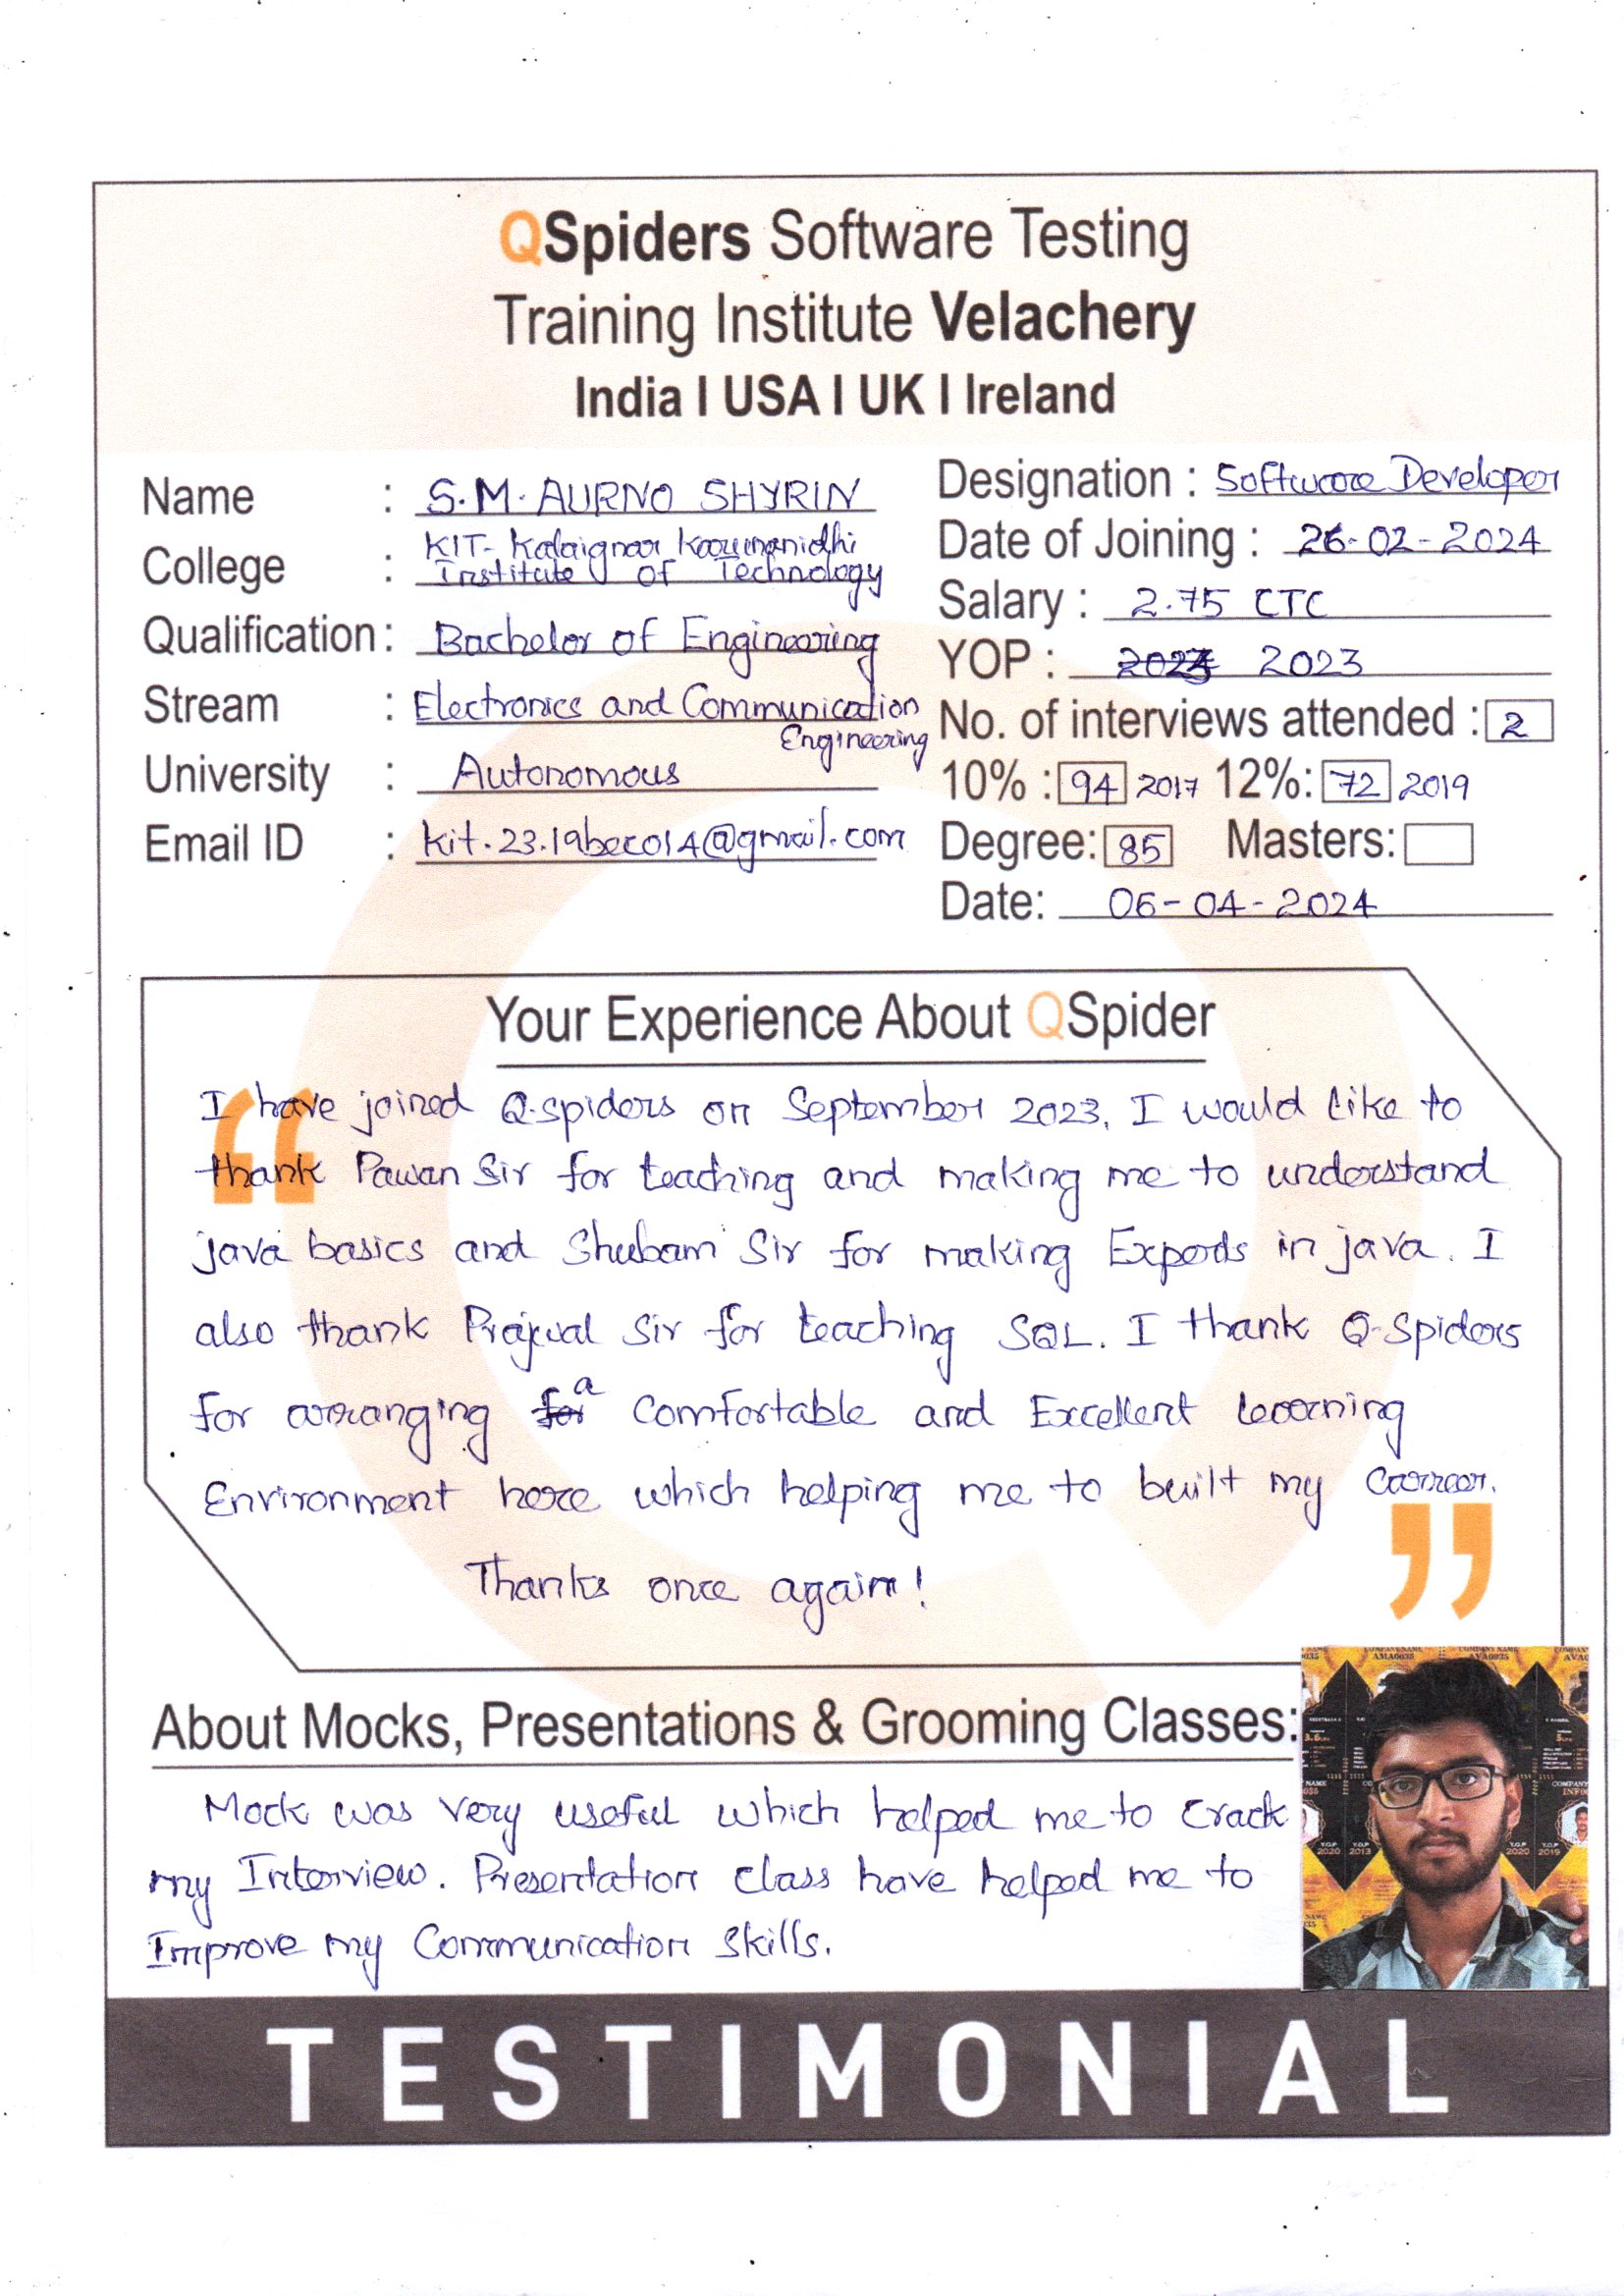 QSpiders Software Testing
Training Institute Velachery
India I USA I UK I Ireland
Name : S.M. AURNO SHYRIN
College : KIT- Kalaignar Karunanidhi
Institute of Technology
Qualification : Bachelor of Engineering
Stream : Electronics and Communication
Engineering
University : Autonomous
Email ID : kit.23.19bec014@gmail.com
Designation : Software Developer
Date of Joining : 26-02-2024
Salary : 2.75 CTC
YOP : 2023
No. of interviews attended : 2
10% : 94 2017 12%: 72 2019
Degree: 85 Masters:
Date: 06-04-2024
Your Experience About QSpider
I have joined Q-spiders on September 2023. I would like to
thank Pawan Sir for teaching and making me to understand
java basics and Shubam Sir for making Experts in java. I
also thank Prajwal Sir for teaching SQL. I thank Q-Spiders
for arranging a Comfortable and Excellent learning
Environment here which helping me to built my Carreer.
Thanks once again!
About Mocks, Presentations & Grooming Classes:
Mock was very useful which helped me to crack
my Interview. Presentation class have helped me to
Improve my Communication skills.
TESTIMONIAL